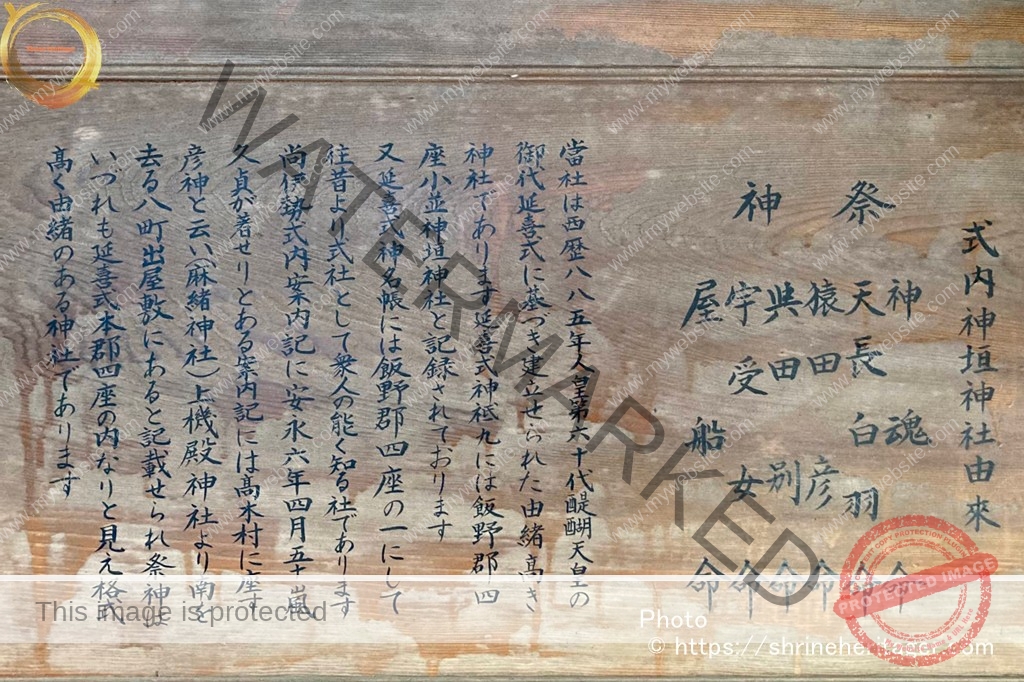 式内神垣神社由來
祭神
神魂命
天長白羽命
猿田彦命
與田別命
宇受女命
屋船命
當社は西歴八八五年人皇第六十代醍醐天皇の
御代延喜式に基づき建立せられた由緒高き
神社であります延喜式神祗九には飯野郡四
座小並神垣神社と記録されております
又延喜式神名帳には飯野郡四座の一にして
往昔より式社として衆人の能く知る社であります
尚伊勢式内案内記に安永六年四月五十嵐
久貞が著せりとある案内記には高木村に座す
彦神と云い(麻緒神社)上機殿神社より南を
去る八町出屋敷にあると記載せられ祭神
いづれも延喜式本郡四座の内なりと見え格式
高く由緒のある神社であります
WATERMARKED
This image is protected
Photo
© https://shrineheritagejr.com
PROTECTED IMAGE
www.mywebsite.com